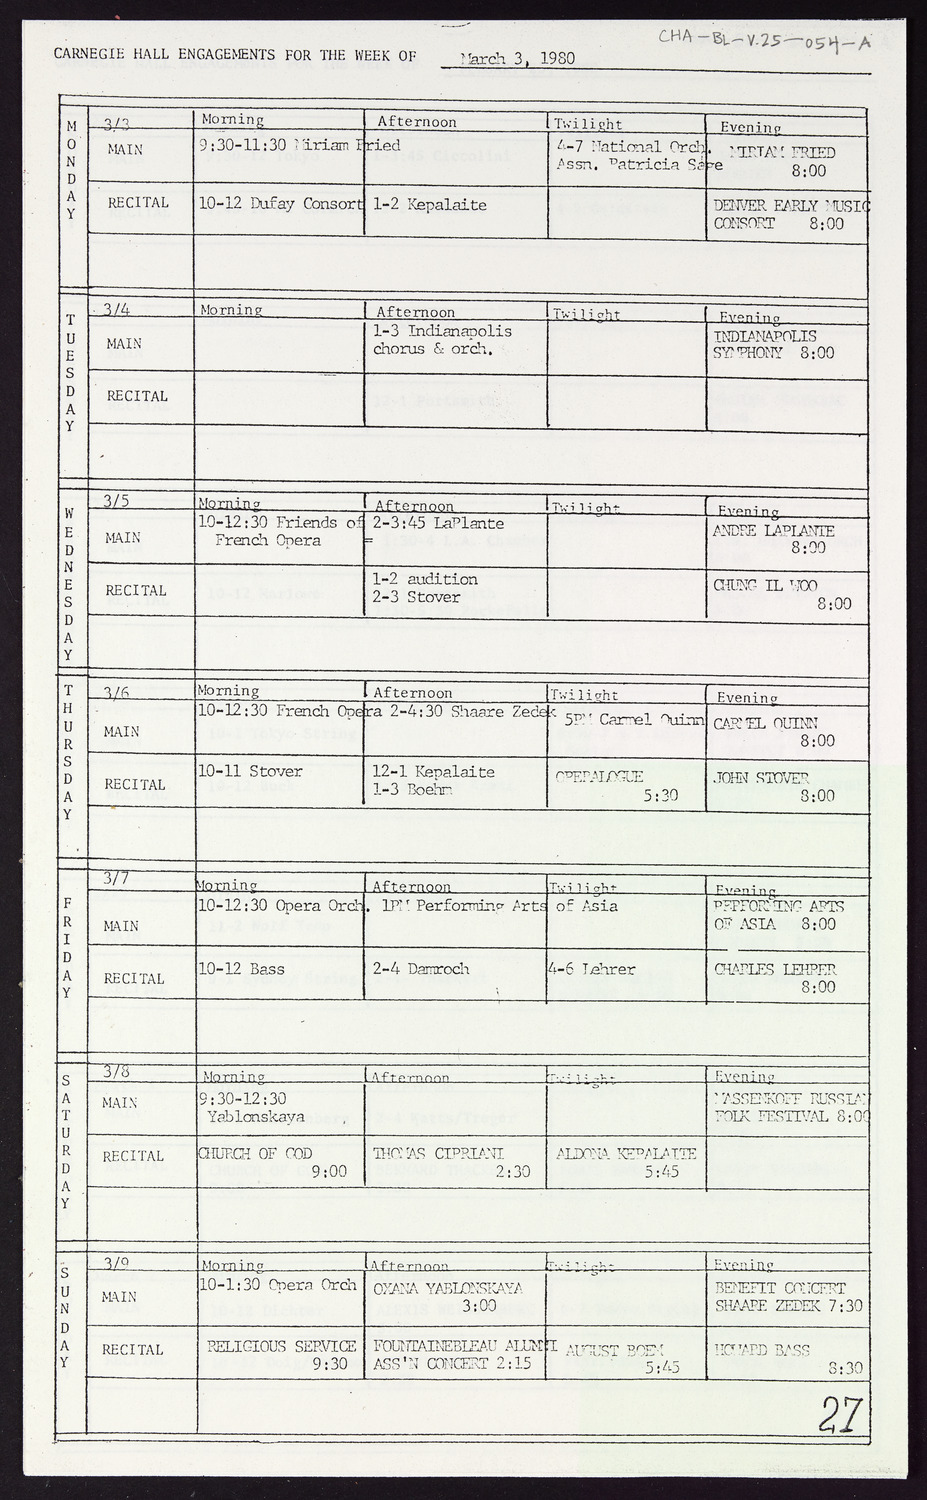 CHA-BL-V.25-054-A
CARNEGIE HALL ENGAGEMENTS FOR THE WEEK OF March 3, 1980
MONDAY
3/3 Morning Afternoon Twilight Evening
MAIN 9:30-11:30 Miriam Fried 4-7 National Orch. MIRIAM FRIED
Assn. Patricia 8:00
RECITAL 10-12 Dufay Consort 1-2 Kepalaite DENVER EARLY MUSIC
CONSORT 8:00
TUESDAY
3/4 Morning Afternoon Twilight Evening
MAIN 1-3 Indianapolis INDIANAPOLIS
chorus & orch. SYMPHONY 8:00
RECITAL
WEDNESDAY
3/5 Morning Afternoon Twilight Evening
MAIN 10-12:30 Friends of 2-3:45 LaPlante ANDRE LAPLANTE
French Opera = 8:00
RECITAL 1-2 audition CHUNG IL WOO
2-3 Stover 8:00
THURSDAY
3/6 Morning Afternoon Twilight Evening
MAIN 10-12:30 French Opera 2-4:30 Shaare Zedek 5PM Carmel Quinn CARMEL QUINN
8:00
RECITAL 10-11 Stover 12-1 Kepalaite OPERALOGUE JOHN STOVER
1-3 Boehm 5:30 8:00
FRIDAY
3/7 Morning Afternoon Twilight Evening
MAIN 10-12:30 Opera Orch. 1PM Performing Arts of Asia PERFORMING ARTS
OF ASIA 8:00
RECITAL 10-12 Bass 2-4 Damroch 4-6 Lehrer CHARLES LEHRER
8:00
SATURDAY
3/8 Morning Afternoon Twilight Evening
MAIN 9:30-12:30 YASSENKOFF RUSSIAN
Yablonskaya FOLK FESTIVAL 8:00
RECITAL CHURCH OF GOD THOMAS CIPRIANI ALDONA KEPALAITE
9:00 2:30 5:45
SUNDAY
3/9 Morning Afternoon Twilight Evening
MAIN 10-1:30 Opera Orch OXANA YABLONSKAYA BENEFIT CONCERT
3:00 SHAARE ZEDEK 7:30
RECITAL RELIGIOUS SERVICE FOUNTAINEBLEAU ALUMNI AUGUST BOEM HOWARD BASS
9:30 ASS'N CONCERT 2:15 5:45 8:30
27